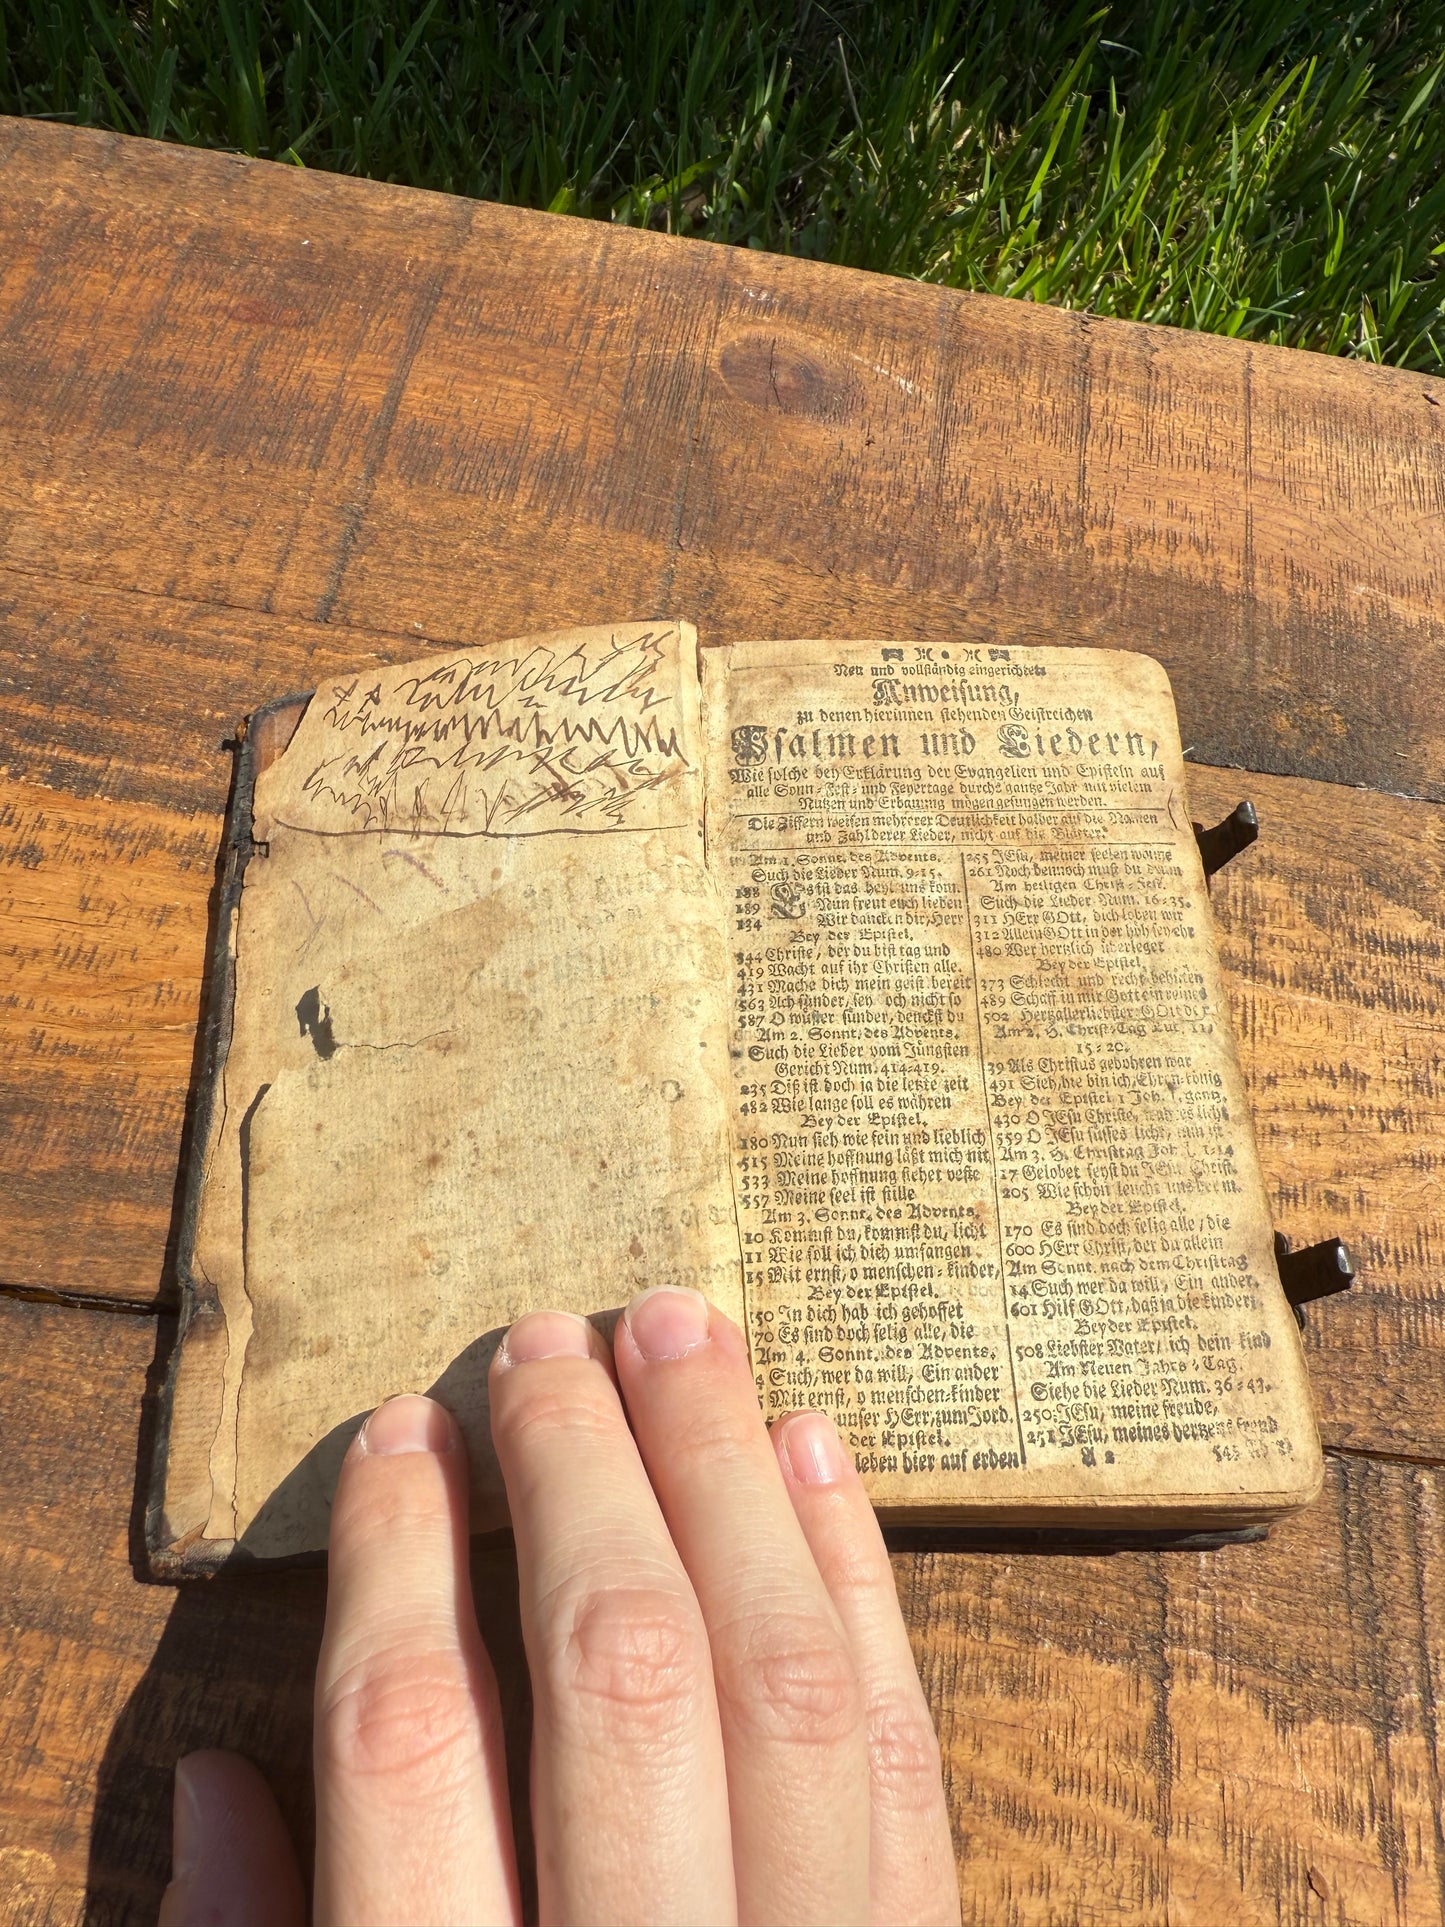 Neu und vollständig eingerichtete
Anweisung,
zu denen hierinnen stehenden Geistreichen
Psalmen und Liedern,
Wie solche bey Erklärung der Evangelien und Episteln auf
alle Sonn- Fest- und Feyertage durchs gantze Jahr mit vielem
Nutzen und Erbauung mögen gesungen werden.
Die Ziffern weisen mehrerer Deutlichkeit halber auf die Namen
und Zahl derer Lieder, nicht auf die Blätter.
Am 1. Sonnt. des Advents.
Such die Lieder Num. 9-15.
188 Es ist das heyl uns kom.
189 Nun freut euch lieben
134 Wir dancken dir, Herr
Bey der Epistel.
344 Christe, der du bist tag und
419 Wacht auf ihr Christen alle.
431 Mache dich mein geist bereit
563 Ach sünder, sey doch nicht so
587 O wüster sünder, denckst du
Am 2. Sonnt. des Advents.
Such die Lieder vom Jüngsten
Gericht Num. 414-419.
235 Diß ist doch ja die letzte zeit
482 Wie lange soll es währen
Bey der Epistel.
180 Nun sieh wie fein und lieblich
515 Meine hoffnung läßt mich nit
533 Meine hoffnung stehet veste
557 Meine seel ist stille
Am 3. Sonnt. des Advents.
10 Kommst du, kommst du, licht
11 Wie soll ich dich umfangen
15 Mit ernst, o menschen-kinder,
Bey der Epistel.
150 In dich hab ich gehoffet
70 Es sind doch selig alle, die
Am 4. Sonnt. des Advents.
4 Such, wer da will, Ein ander
5 Mit ernst, o menschen-kinder
unser HErr, zum Jord.
der Epistel.
leben hier auf erden
255 JEsu, meiner seelen wonne
261 Noch dennoch must du drum
Am heiligen Christ-Fest.
Such die Lieder Num. 16-35.
311 HErr GOtt, dich loben wir
312 Allein GOtt in der höh sey ehr
480 Wer hertzlich überleget
Bey der Epistel.
373 Schlecht und recht behüten
489 Schaff in mir Gott ein reines
502 Hertzallerliebster GOtt der
Am 2. H. Christ-Tag Luc. 11,
15-20.
39 Als Christus gebohren war
491 Sieh, hie bin ich, Ehren-könig
Bey der Epistel 1 Joh. 1. gantz.
430 O JEsu Christe, wahres licht
559 O JEsu süsses licht, nun ist
Am 3. H. Christtag Joh. 1, 1-14
17 Gelobet seyst du JEsu Christ.
205 Wie schön leucht uns der m.
Bey der Epistel.
170 Es sind doch selig alle, die
600 HErr Christ, der du allein
Am Sonnt. nach dem Christtag
14 Such wer da will, Ein ander.
601 Hilf GOtt, daß ja die kinder
Bey der Epistel.
508 Liebster Vater, ich dein kind
Am Neuen Jahrs-Tag.
Siehe die Lieder Num. 36-43.
250 JEsu, meine freude,
251 JEsu, meines hertzens freud
A 2